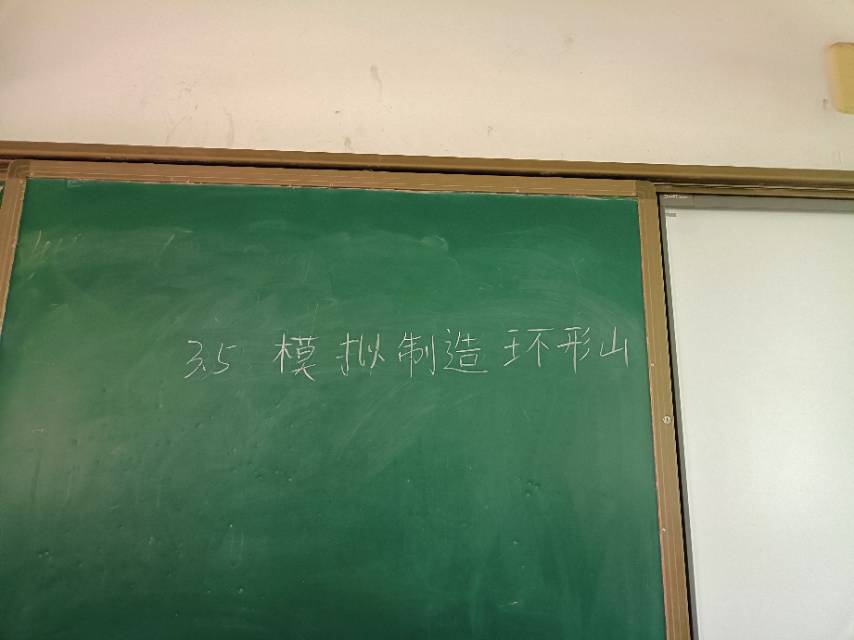 3.5 模拟制造环形山